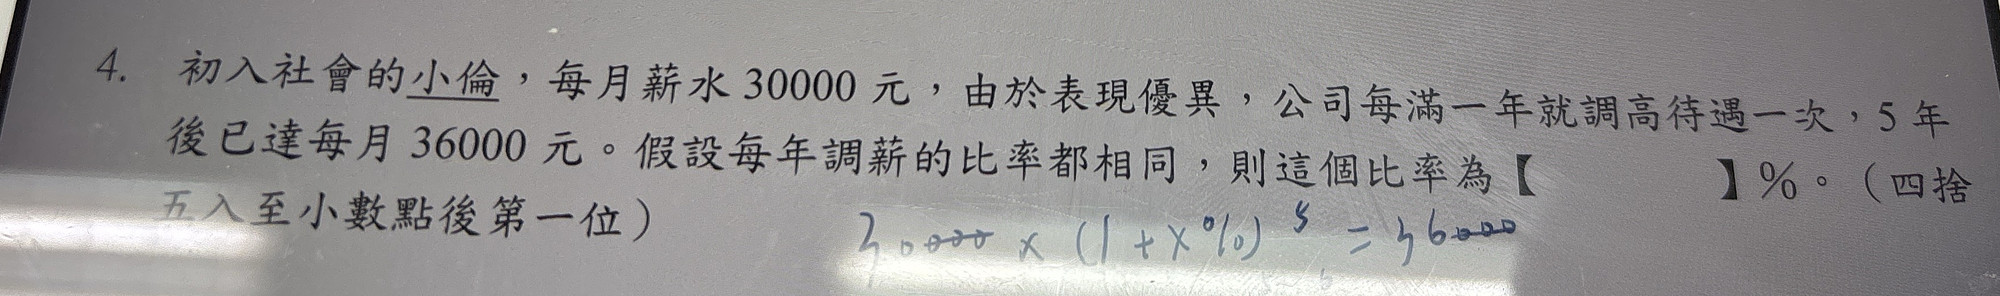 4. 初入社會的小倫，每月薪水 30000 元，由於表現優異，公司每滿一年就調高待遇一次，5 年
後已達每月 36000 元。假設每年調薪的比率都相同，則這個比率為【 】%。（四捨
五入至小數點後第一位）
30000 × (1+x%)⁵ = 36000